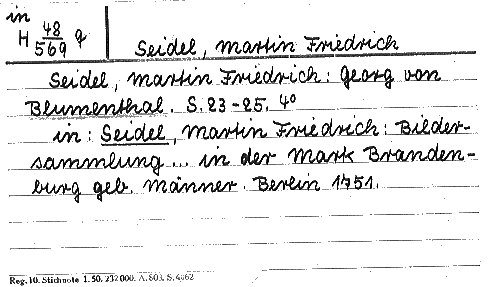 in
H 48/569 q
Seidel, Martin Friedrich
Seidel, Martin Friedrich: Georg von
Blumenthal. S. 23-25. 4°
in: Seidel, Martin Friedrich: Bilder-
sammlung... in der Mark Branden-
burg geb. Männer. Berlin 1751.
Reg. 10. Stichnote 1. 50. 232000. A. 803. S. 4662